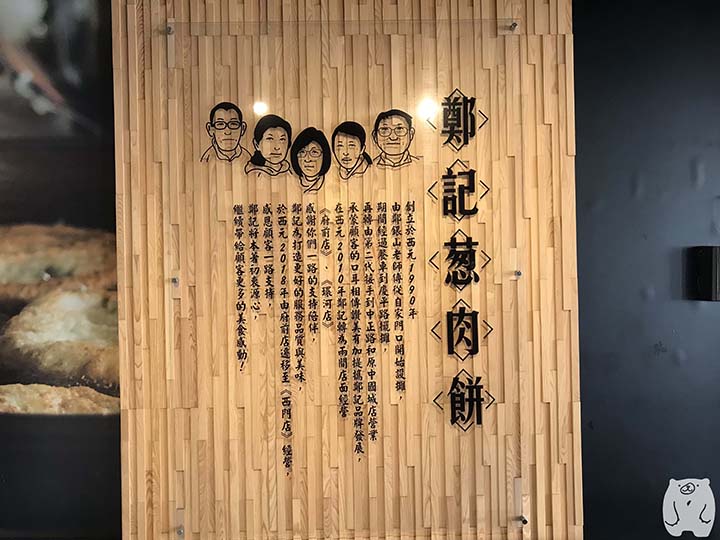 鄭記葱肉餅
創立於西元1990年
由鄭銀山老師傅從自家門口開始設攤，
期間經過餐車到慶平路擺攤，
再轉由第二代接手到中正路和原中國城店營業
承蒙顧客的口耳相傳讚美有加提攜鄭記品牌發展，
在西元2010年鄭記轉為兩間店面經營
《麻前店》、《環河店》
感謝你們一路的支持陪伴，
鄭記為打造更好的服務品質與美味，
於西元2018年由麻前店遷移至《西門店》經營，
感恩顧客一路支持，
鄭記將本著初衷源心，
繼續帶給顧客更多的美食感動！